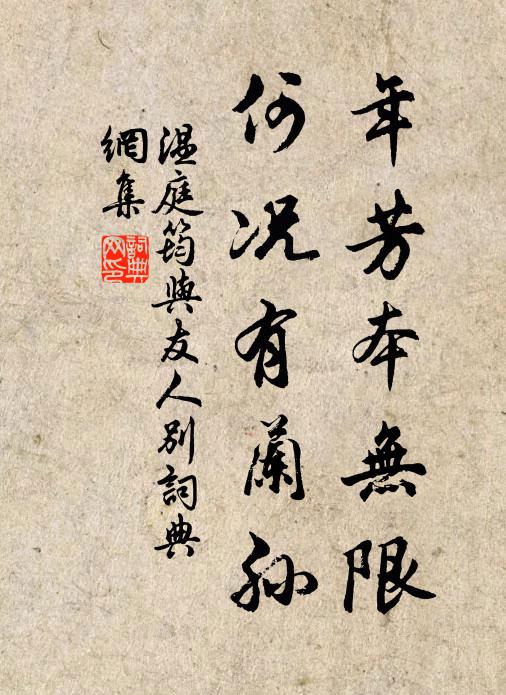 年芳本無限
何况有蘭孫
温庭筠與友人别詞典
網集
詞典
网印